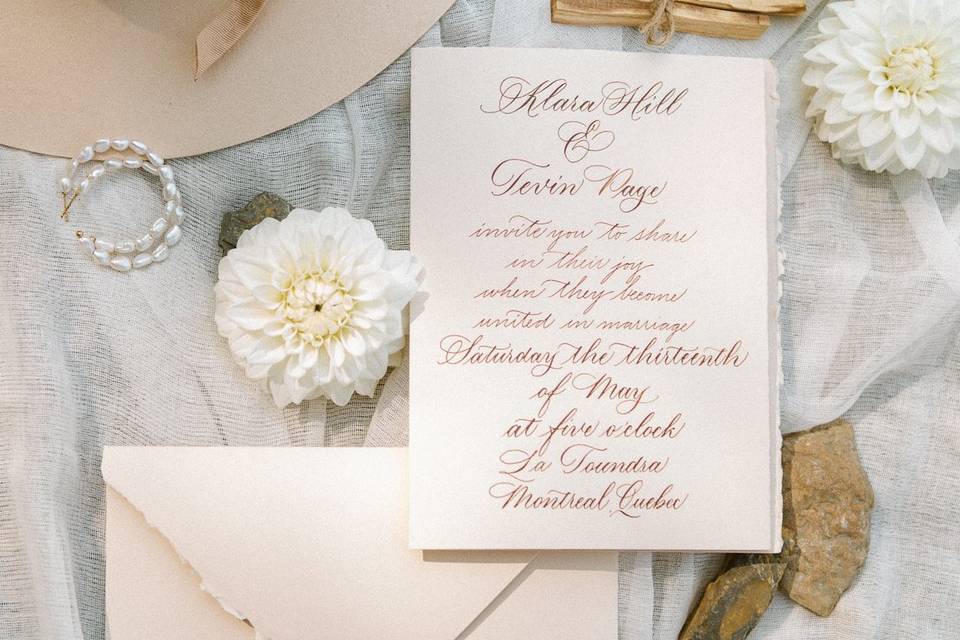 Klara Hill
&
Tevin Page
invite you to share
in their joy
when they become
united in marriage
Saturday the thirteenth
of May
at five o'clock
La Toundra
Montreal, Quebec